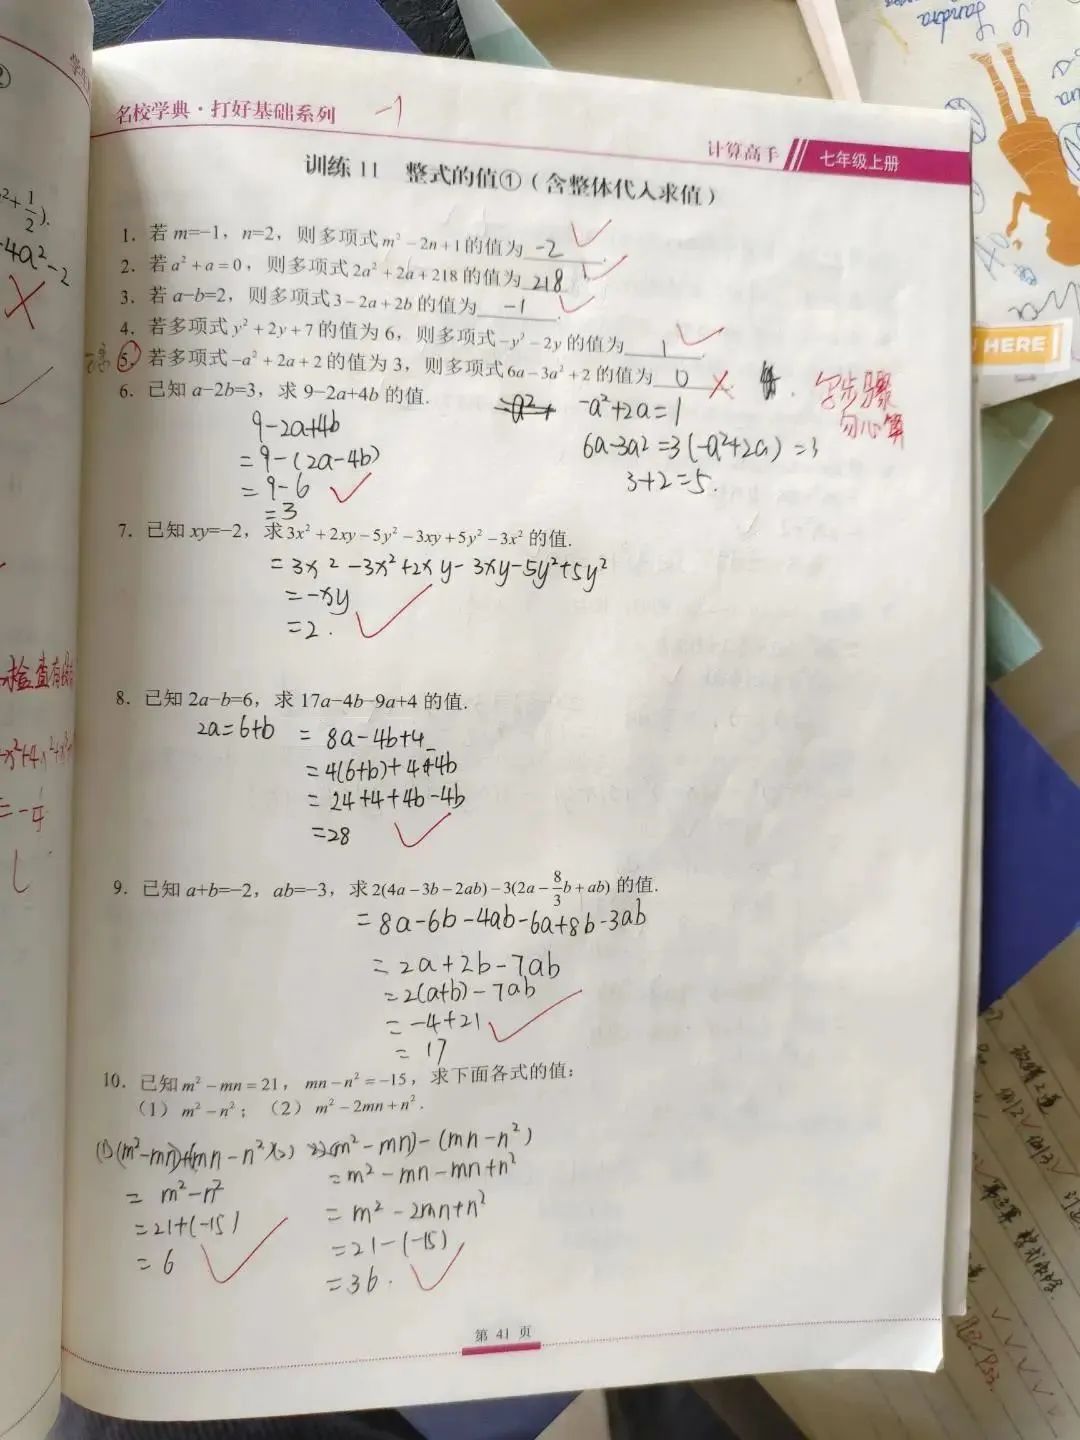 名校学典·打好基础系列
-1
计算高手 七年级上册
训练 11 整式的值①（含整体代入求值）
1. 若 m=-1，n=2，则多项式 m²-2n+1 的值为 -2 .
2. 若 a²+a=0，则多项式 2a²+2a+218 的值为 218 .
3. 若 a-b=2，则多项式 3-2a+2b 的值为 -1 .
4. 若多项式 y²+2y+7 的值为 6，则多项式 -y²-2y 的值为 1 .
5. 若多项式 -a²+2a+2 的值为 3，则多项式 6a-3a²+2 的值为 0 .
写步骤
勿心算
-a²+2a=1
6a-3a²=3(-a²+2a)=3
3+2=5.
6. 已知 a-2b=3，求 9-2a+4b 的值.
9-2a+4b
=9-(2a-4b)
=9-6
=3
7. 已知 xy=-2，求 3x²+2xy-5y²-3xy+5y²-3x² 的值.
=3x²-3x²+2xy-3xy-5y²+5y²
=-xy
=2.
8. 已知 2a-b=6，求 17a-4b-9a+4 的值.
2a=6+b
=8a-4b+4
=4(6+b)+4-4b
=24+4+4b-4b
=28
9. 已知 a+b=-2，ab=-3，求 2(4a-3b-2ab)-3(2a-8/3b+ab) 的值.
=8a-6b-4ab-6a+8b-3ab
=2a+2b-7ab
=2(a+b)-7ab
=-4+21
=17
10. 已知 m²-mn=21，mn-n²=-15，求下面各式的值：
（1）m²-n²；（2）m²-2mn+n².
(1)(m²-mn)+(mn-n²)
=m²-n²
=21+(-15)
=6
(2)(m²-mn)-(mn-n²)
=m²-mn-mn+n²
=m²-2mn+n²
=21-(-15)
=36.
第 41 页
HERE
Sandra